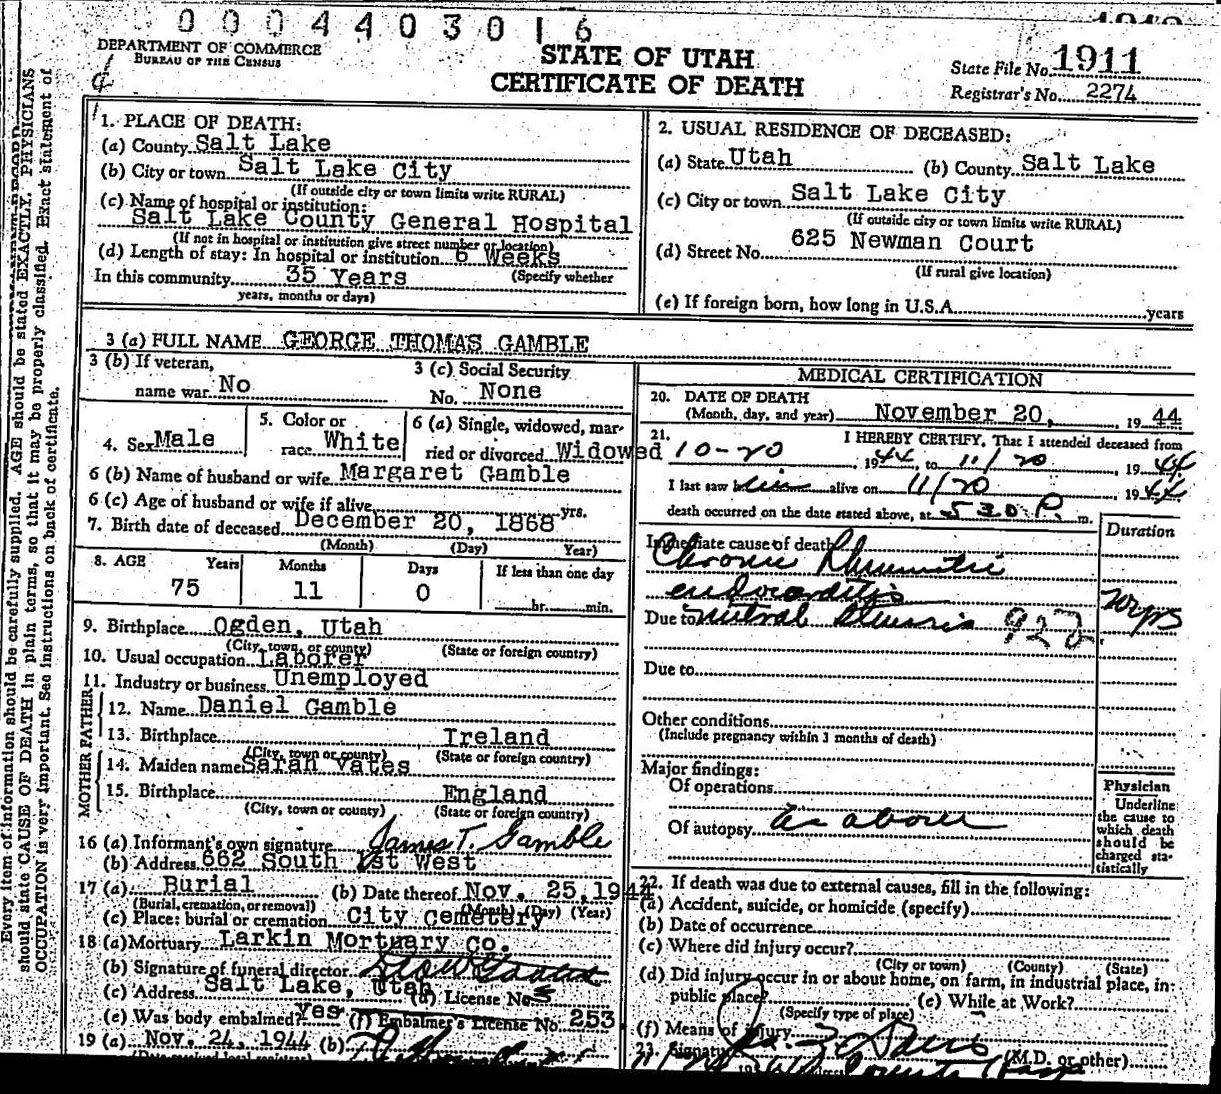 0004403016
DEPARTMENT OF COMMERCE
BUREAU OF THE CENSUS
STATE OF UTAH
CERTIFICATE OF DEATH
State File No. 1911
Registrar's No. 2274
Every item of information should be carefully supplied. AGE should be stated EXACTLY. PHYSICIANS
should state CAUSE OF DEATH in plain terms, so that it may be properly classified. Exact statement of
OCCUPATION is very important. See instructions on back of certificate.
1. PLACE OF DEATH:
(a) County Salt Lake
(b) City or town Salt Lake City
(If outside city or town limits write RURAL)
(c) Name of hospital or institution:
Salt Lake County General Hospital
(If not in hospital or institution give street number or location)
(d) Length of stay: In hospital or institution 6 Weeks
In this community 35 Years (Specify whether
years, months or days)
2. USUAL RESIDENCE OF DECEASED:
(a) State Utah (b) County Salt Lake
(c) City or town Salt Lake City
(If outside city or town limits write RURAL)
(d) Street No. 625 Newman Court
(If rural give location)
(e) If foreign born, how long in U.S.A. years
3 (a) FULL NAME GEORGE THOMAS GAMBLE
3 (b) If veteran,
name war No
3 (c) Social Security
No. None
4. Sex Male
5. Color or
race White
6 (a) Single, widowed, mar-
ried or divorced Widowed
6 (b) Name of husband or wife Margaret Gamble
6 (c) Age of husband or wife if alive yrs.
7. Birth date of deceased December 20, 1868
(Month) (Day) Year)
8. AGE Years Months Days If less than one day
75 11 0 hr. min.
9. Birthplace Ogden, Utah
(City, town, or county) (State or foreign country)
10. Usual occupation Laborer
11. Industry or business Unemployed
FATHER
12. Name Daniel Gamble
13. Birthplace Ireland
(City, town or county) (State or foreign country)
MOTHER
14. Maiden name Sarah Yates
15. Birthplace England
(City, town or county) (State or foreign country)
16 (a) Informant's own signature James T. Gamble
(b) Address 662 South 1st West
17 (a) Burial (b) Date thereof Nov. 25, 1944
(Burial, cremation, or removal) (Month) (Day) (Year)
(c) Place: burial or cremation City Cemetery
18 (a) Mortuary Larkin Mortuary Co.
(b) Signature of funeral director
(c) Address Salt Lake, Utah (d) License No. 5
(e) Was body embalmed? Yes (f) Embalmer's License No. 253
19 (a) Nov. 24, 1944 (b)
MEDICAL CERTIFICATION
20. DATE OF DEATH
(Month, day, and year) November 20, 1944
21. I HEREBY CERTIFY, That I attended deceased from
10-20, 1944, to 11/20, 1944
I last saw him alive on 11/20 1944
death occurred on the date stated above, at 530 P. m.
Immediate cause of death Duration
Chronic Rheumatic
endocarditis
Due to mitral Stenosis 92b
Due to
Other conditions
(Include pregnancy within 3 months of death)
Major findings:
Of operations
Of autopsy as above
Physician
Underline
the cause to
which death
should be
charged sta-
tistically
22. If death was due to external causes, fill in the following:
(a) Accident, suicide, or homicide (specify)
(b) Date of occurrence
(c) Where did injury occur?
(City or town) (County) (State)
(d) Did injury occur in or about home, on farm, in industrial place, in
public place? (e) While at Work?
(Specify type of place)
(f) Means of injury
23. Signature (M.D. or other)